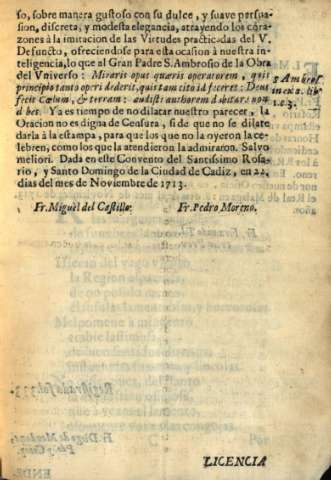 so, sobre manera gustoso con su dulce, y suave persua-
sion, discreta, y modesta elegancia, atrayendo los cora-
zones à la imitacion de las Virtudes practicadas del V.
Defuncto, ofreciendose para esta ocasion à nuestra in-
teligencia, lo que al Gran Padre S. Ambrosio de la Obra
del Vniverso: Miraris opus quæris operatorem, quis
principio tanto operi dederit, quis tam cito id feceret: Deus
fecit Cœlum, & terram: audisti authorem dubitare non
debes. Ya es tiempo de no dilatar nuestro parecer, la
Oracion no es digna de Censura, si de que no se dilate
darla à la estampa, para que los que no la oyeron la ce-
lebren, como los que la atendieron la admiraron. Salvo
meliori. Dada en este Convento del Santissimo Rosa-
rio, y Santo Domingo de la Ciudad de Cadiz, en 22.
dias del mes de Noviembre de 1713.
Fr. Miguel del Castillo. Fr. Pedro Moreno.
LICENCIA